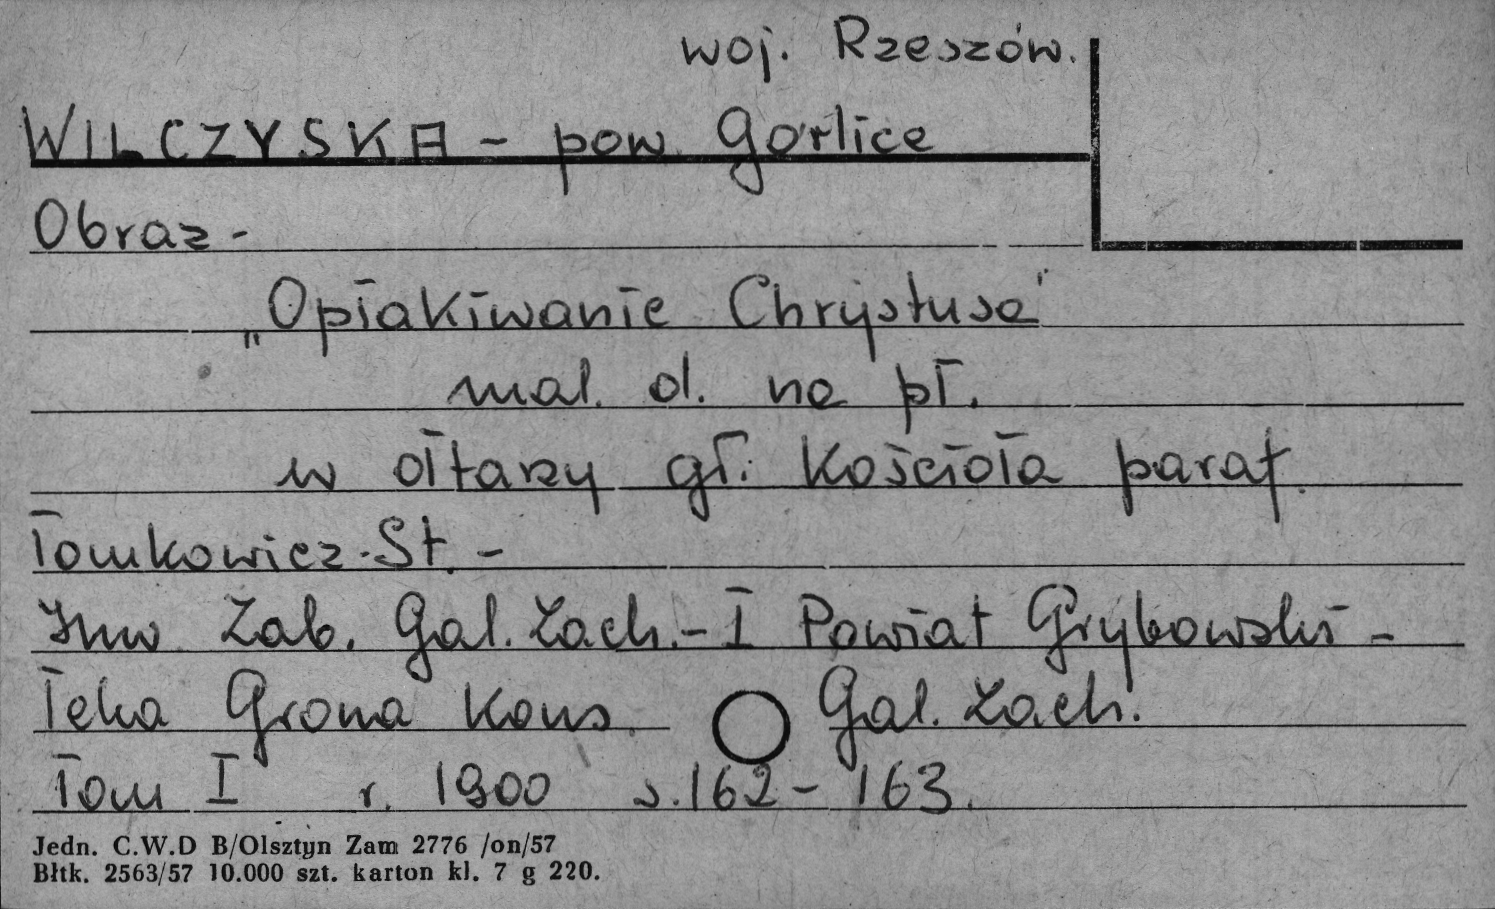 woj. Rzeszów.
WILCZYSKA - pow. Gorlice
Obraz -
„Opłakiwanie Chrystusa"
mal. ol. na pł.
w ołtarzy gł. Kościoła paraf.
Tomkowicz St. -
Inw Zab. Gal. Zach. - I Powiat Grybowski -
Teka Grona Kons. Gal. Zach.
Tom I r. 1900 s. 162 - 163.
Jedn. C.W.D B/Olsztyn Zam 2776 /on/57
Błtk. 2563/57 10.000 szt. karton kl. 7 g 220.